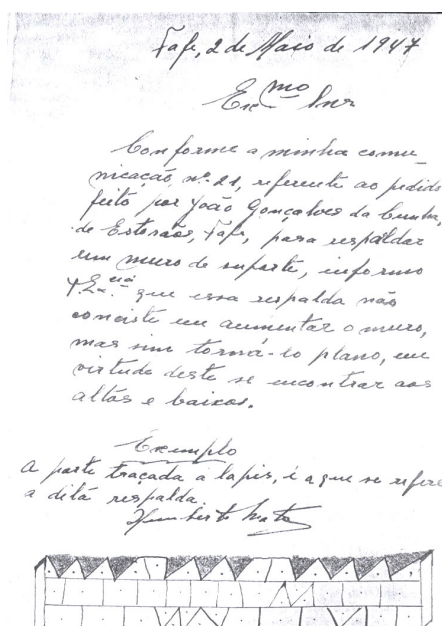 Fafe, 2 de Maio de 1947
Exmo Snr
Conforme a minha comu-
nicação, nº 21, referente ao pedido
feito por João Gonçalves da Cunha,
de Estorãos, Fafe, para respaldar
um muro de suporte, informo
V. Excia que essa respalda não
conciste em aumentar o muro,
mas sim torná-lo plano, em
virtude deste se encontrar aos
altos e baixos.
Exemplo
A parte traçada a lapis, é a que se refere
a dita respalda.
Humberto Mata